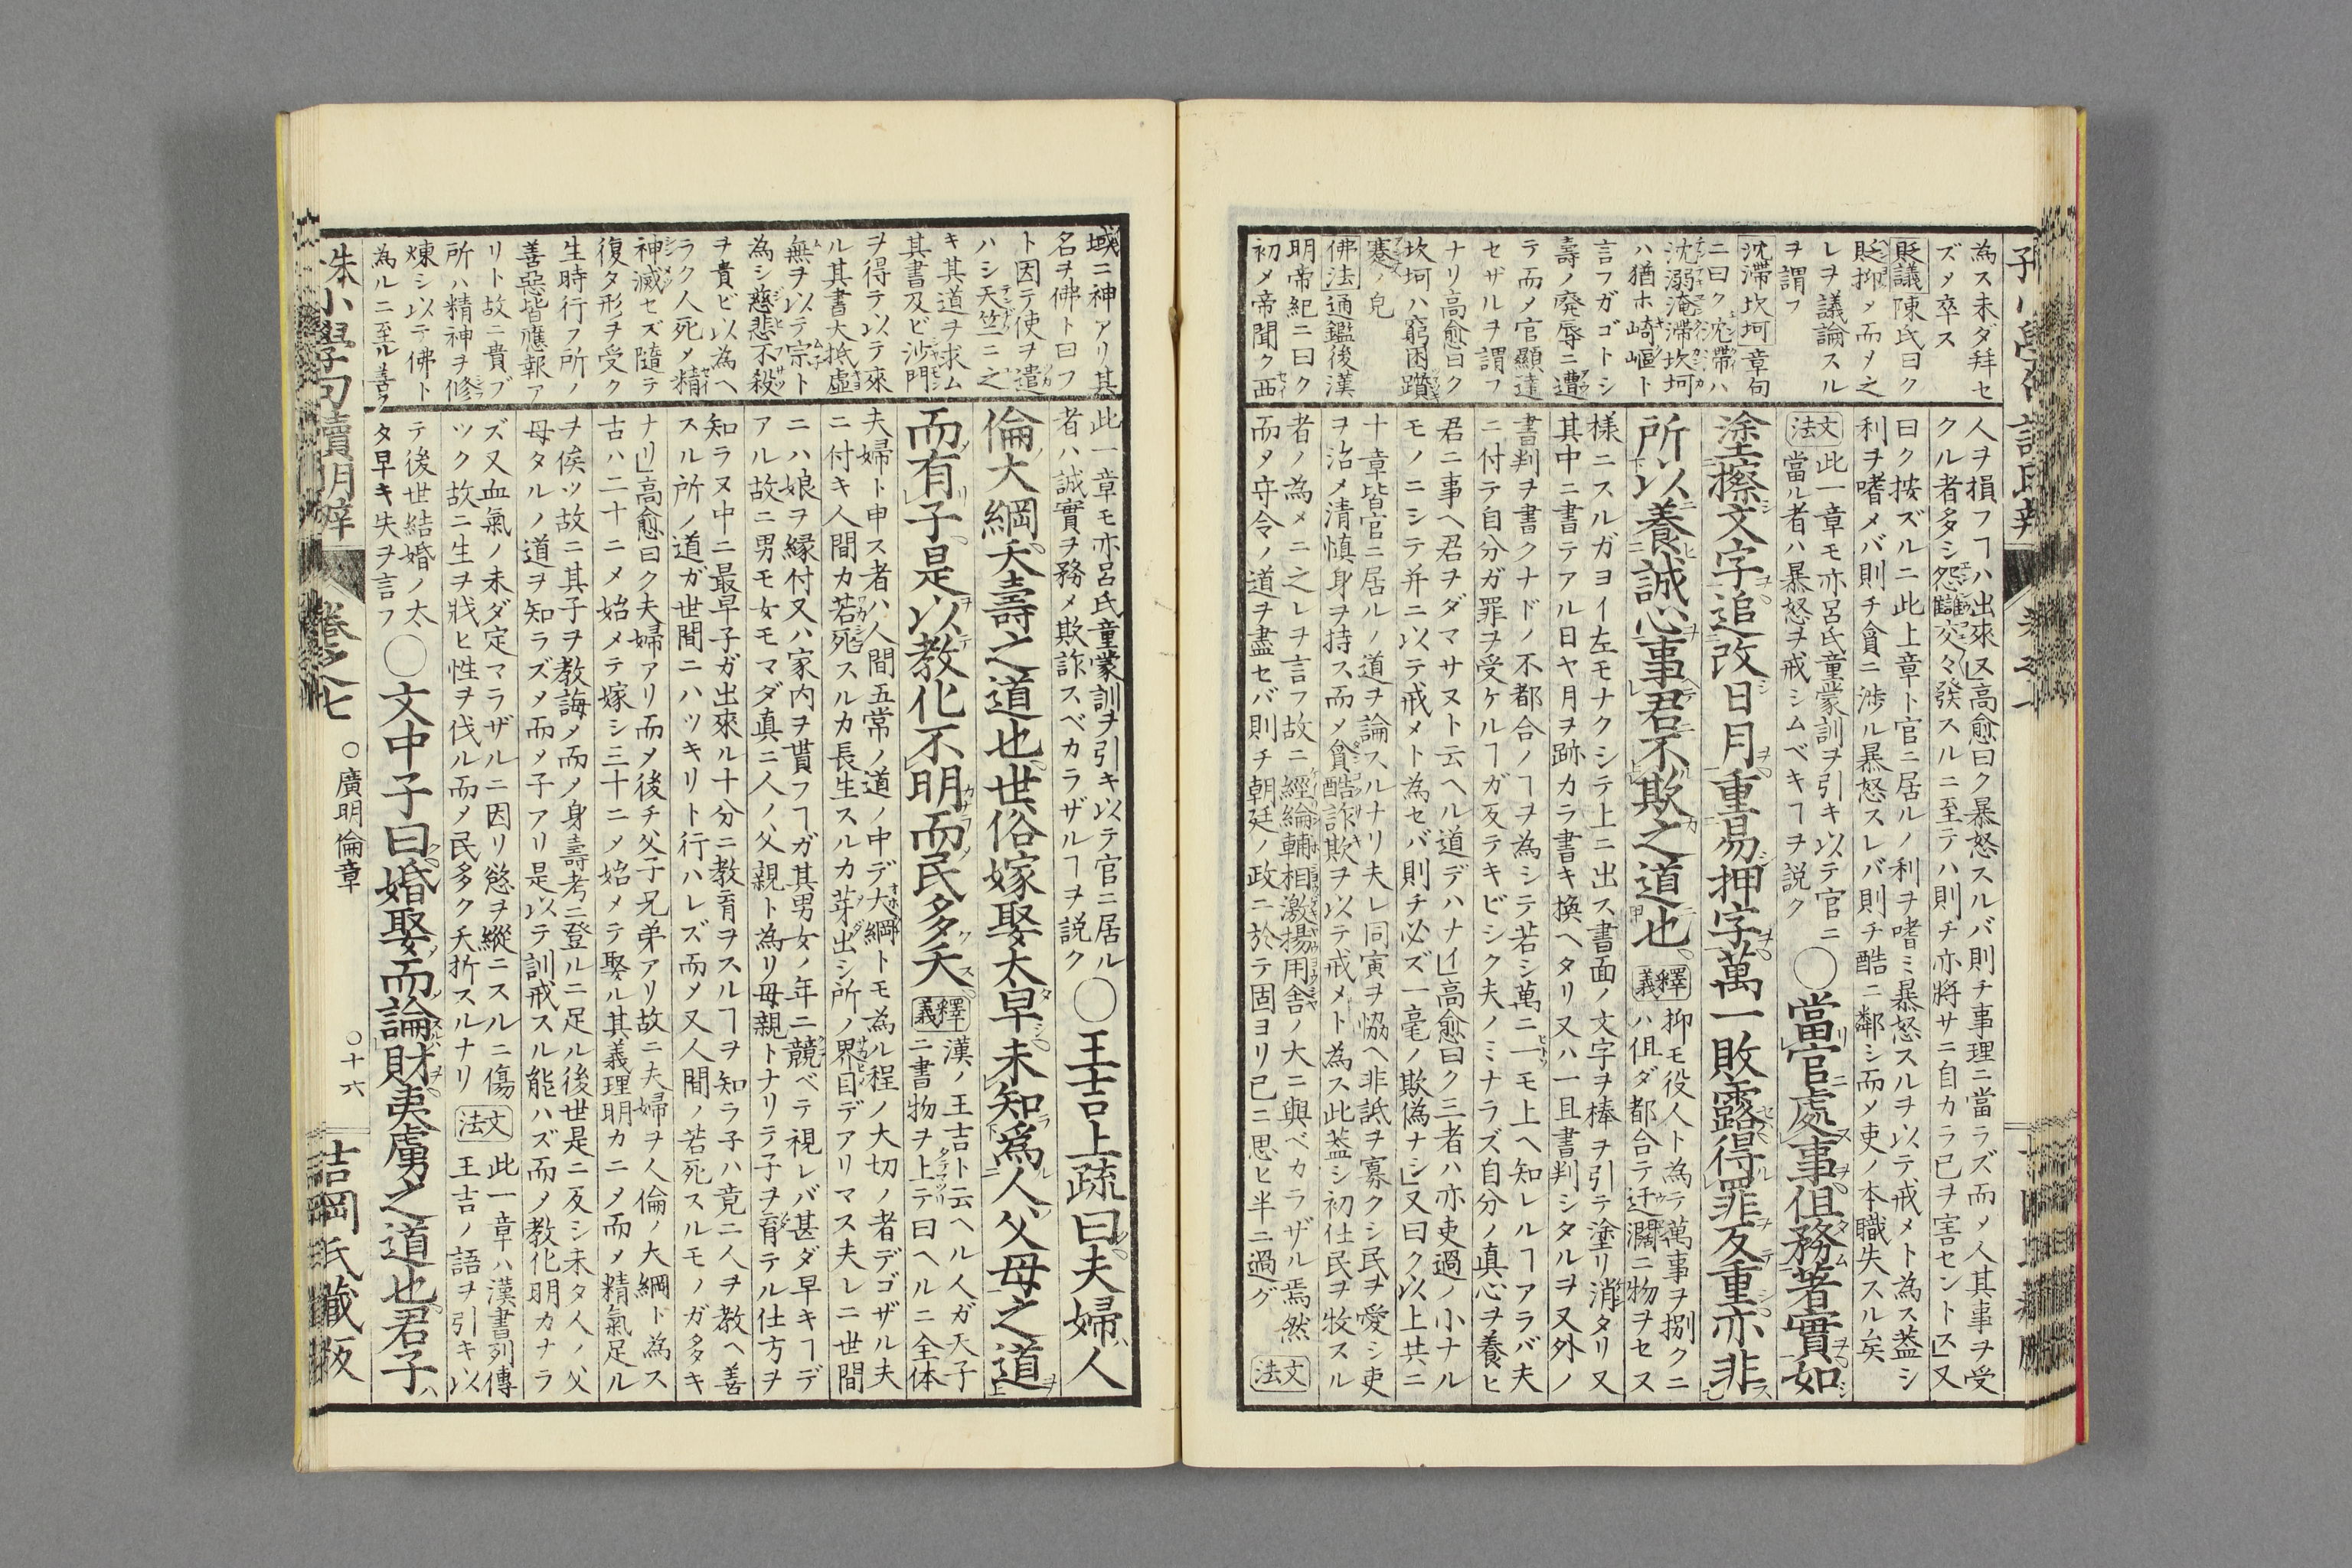 為ス未ダ拜セ
ズメ卒ス
貶議陳氏曰ク
貶抑メ而メ之
レヲ議論スル
ヲ謂フ
沈滯坎坷章句
ニ曰ク沈滯ハ
沈溺淹滯坎坷
ハ猶ホ崎嶇ト
言フガゴトシ
壽ノ廃辱ニ遭
テ而メ官顯達
セザルヲ謂フ
ナリ高愈曰ク
坎坷ハ窮困躓
蹇ノ皃
佛法通鑑後漢
明帝紀ニ曰ク
初メ帝聞ク西
人ヲ損フヿハ出來ル又高愈曰ク暴怒スルバ則チ事理ニ當ラズ而メ人其事ヲ受
クル者多シ怨讎交々發スルニ至テハ則チ亦將サニ自カラ已ヲ害セントス又
曰ク按ズルニ此上章ト官ニ居ルノ利ヲ嗜ミ暴怒スルヲ以テ戒メト為ス葢シ
利ヲ嗜メバ則チ貪ニ渉ル暴怒スレバ則チ酷ニ鄰シ而メ吏ノ本職失スル矣
文法此一章モ亦呂氏童蒙訓ヲ引キ以テ官ニ
當ル者ハ暴怒ヲ戒シムベキヿヲ説ク
〇當官處事但務著實如
塗擦文字追改日月重易押字萬一敗露得罪反重亦非
所以養誠心事君不欺之道也
釋義抑モ役人ト為テ萬事ヲ捌クニ
ハ但ダ都合テ迂濶ニ物ヲセヌ
様ニスルガヨイ左モナクシテ上ニ出ス書面ノ文字ヲ棒ヲ引テ塗リ消タリ又
其中ニ書テアル日ヤ月ヲ跡カラ書キ換ヘタリ又ハ一且書判シタルヲ又外ノ
書判ヲ書クナドノ不都合ノヿヲ為シテ若シ萬ニ一モ上ヘ知レルヿアラバ夫
ニ付テ自分ガ罪ヲ受ケルヿガ反テキビシク夫ノミナラズ自分ノ真心ヲ養ヒ
君ニ事ヘ君ヲダマサヌト云ヘル道デハナイ高愈曰ク三者ハ亦吏過ノ小ナル
モノニシテ并ニ以テ戒メト為セバ則チ必ズ一毫ノ欺偽ナシ又曰ク以上共ニ
十章皆官ニ居ルノ道ヲ論スルナリ夫レ同寅ヲ恊ヘ非詆ヲ寡クシ民ヲ愛シ吏
ヲ治メ清慎身ヲ持ス而メ貪酷詐欺ヲ以テ戒メト為ス此葢シ初仕民ヲ牧スル
者ノ為メニ之レヲ言フ故ニ經綸輔相激揚用舍ノ大ニ與ベカラザル焉然
而メ守令ノ道ヲ盡セバ則チ朝廷ノ政ニ於テ固ヨリ已ニ思ヒ半ニ過グ
文法
域ニ神アリ其
名ヲ佛ト曰フ
ト因テ使ヲ遣
ハシ天竺ニ之
キ其道ヲ求ム
其書及ビ沙門
ヲ得テ以テ來
ル其書大抵虚
無ヲ以テ宗ト
為シ慈悲不殺
ヲ貴ビ以為ヘ
ラク人死メ精
神滅セズ隨テ
復タ形ヲ受ク
生時行フ所ノ
善惡皆應報ア
リト故ニ貴ブ
所ハ精神ヲ修
煉シ以テ佛ト
為ルニ至ル善ク
此一章モ亦呂氏童蒙訓ヲ引キ以テ官ニ居ル
者ハ誠實ヲ務メ欺詐スベカラザルヿヲ説ク
〇王吉上疏曰夫婦人
倫大綱夭壽之道也世俗嫁娶太早未知爲人父母之道
而有子是以教化不明而民多夭
釋義漢ノ王吉ト云ヘル人ガ天子
ニ書物ヲ上テ曰ヘルニ全体
夫婦ト申ス者ハ人間五常ノ道ノ中デ大綱トモ為ル程ノ大切ノ者デゴザル夫
ニ付キ人間カ若死スルカ長生スルカ芽出シ所ノ界目デアリマス夫レニ世間
ニハ娘ヲ縁付又ハ家内ヲ貰フヿガ其男女ノ年ニ競ベテ視レバ甚ダ早キヿデ
アル故ニ男モ女モマダ真ニ人ノ父親ト為リ母親トナリテ子ヲ育テル仕方ヲ
知ラヌ中ニ最早子ガ出來ル十分ニ教育ヲスルヿヲ知ラ子ハ竟ニ人ヲ教ヘ善
スル所ノ道ガ世間ニハツキリト行ハレズ而メ又人間ノ若死スルモノガ多キ
ナリ高愈曰ク夫婦アリ而メ後チ父子兄弟アリ故ニ夫婦ヲ人倫ノ大綱ト為ス
古ハ二十ニメ始メテ嫁シ三十ニメ始メテ娶ル其義理明カニメ而メ精氣足ル
ヲ俟ツ故ニ其子ヲ教誨メ而ノ身壽考ニ登ルニ足ル後世是ニ反シ未タ人ノ父
母タルノ道ヲ知ラズメ而メ子アリ是以テ訓戒スル能ハズ而メ教化明カナラ
ズ又血氣ノ未ダ定マラザルニ因リ慾ヲ縱ニスルニ傷
ツク故ニ生ヲ戕ヒ性ヲ伐ル而メ民多ク夭折スルナリ
文法此一章ハ漢書列傳
王吉ノ語ヲ引キ以
テ後世結婚ノ太
タ早キ失ヲ言フ
〇文中子曰婚娶而論財夷虜之道也君子
小學句讀明辨 卷之七 〇廣明倫章 〇十六 吉岡氏藏版